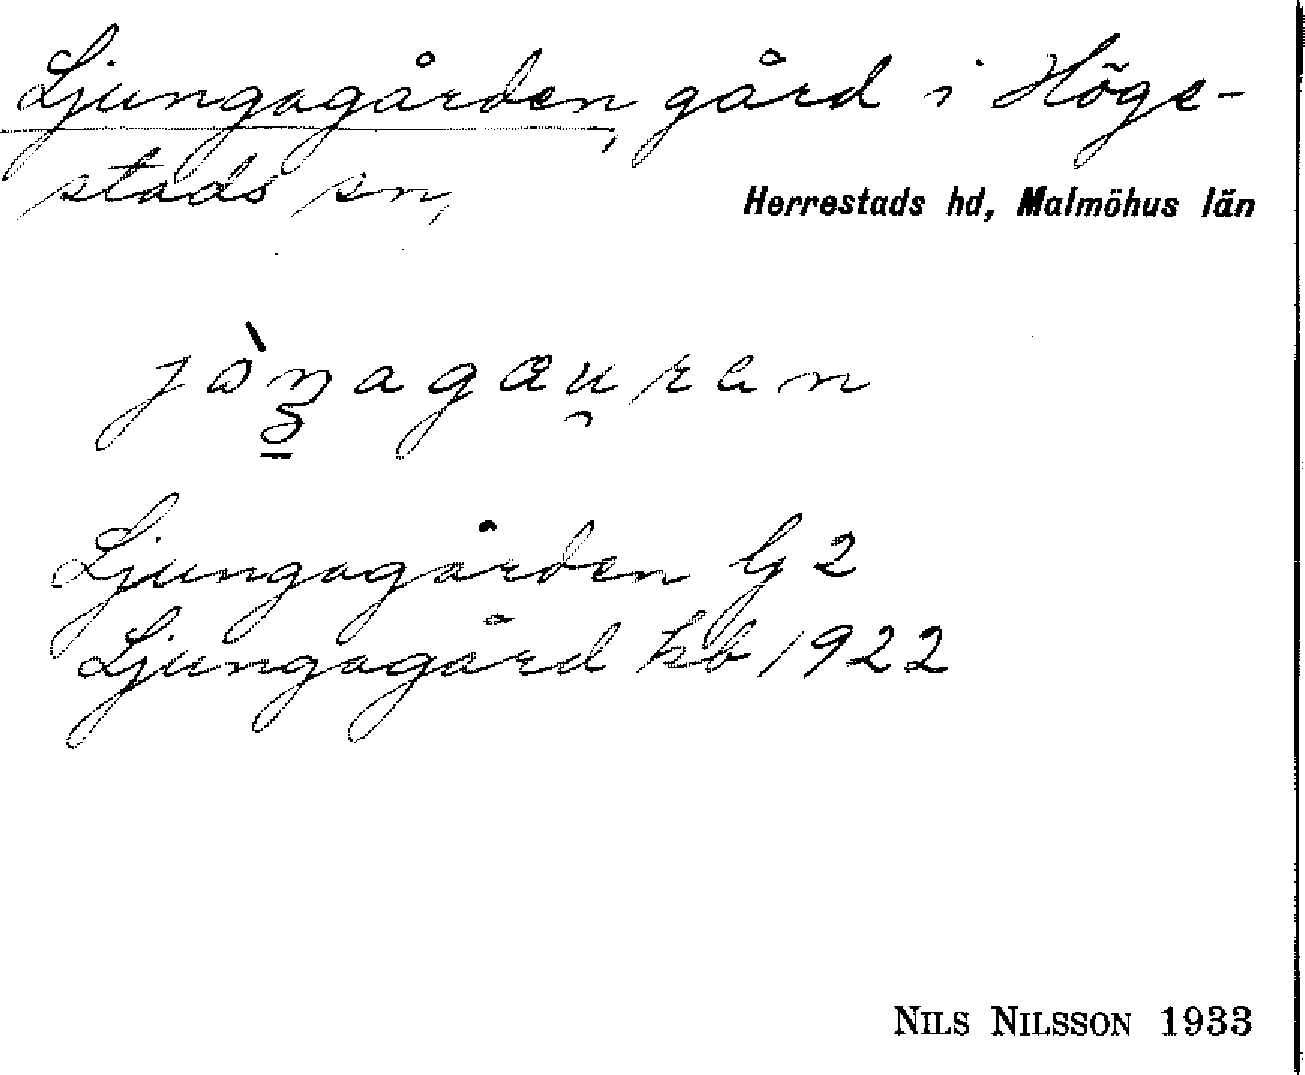 Ljungagården, gård i Höge-
stads sn, Herrestads hd, Malmöhus län
jòŋagæu̯ran
Ljungagården Gj 2
Ljungagård kb 1922
NILS NILSSON 1933